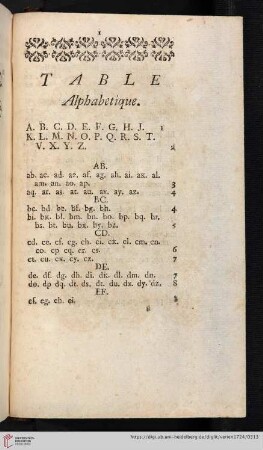 1
TABLE
Alphabetique.
A. B. C. D. E. F. G. H. J. 1
K. L. M. N. O. P. Q. R. S. T.
V. X. Y. Z. 2
AB.
ab. ac. ad. ae. af. ag. ah. ai. ax. al.
am. an. ao. ap. 3
aq. ar. as. at. au. av. ay. az. 4
BC.
bc. bd. be. bf. bg. bh. 4
bi. bx. bl. bm. bn. bo. bp. bq. br.
bs. bt. bu. bx. by. bz. 5
CD.
cd. ce. cf. cg. ch. ci. cx. cl. cm. cn.
co. cp cq. cr. cs. 6
ct. cu. cx. cy. cz. 7
DE.
de. df. dg. dh. di. dk. dl. dm. dn. 7
do. dp dq. dr. ds. dt. du. dx. dy. dz. 8
EF.
ef. eg. eh. ei.